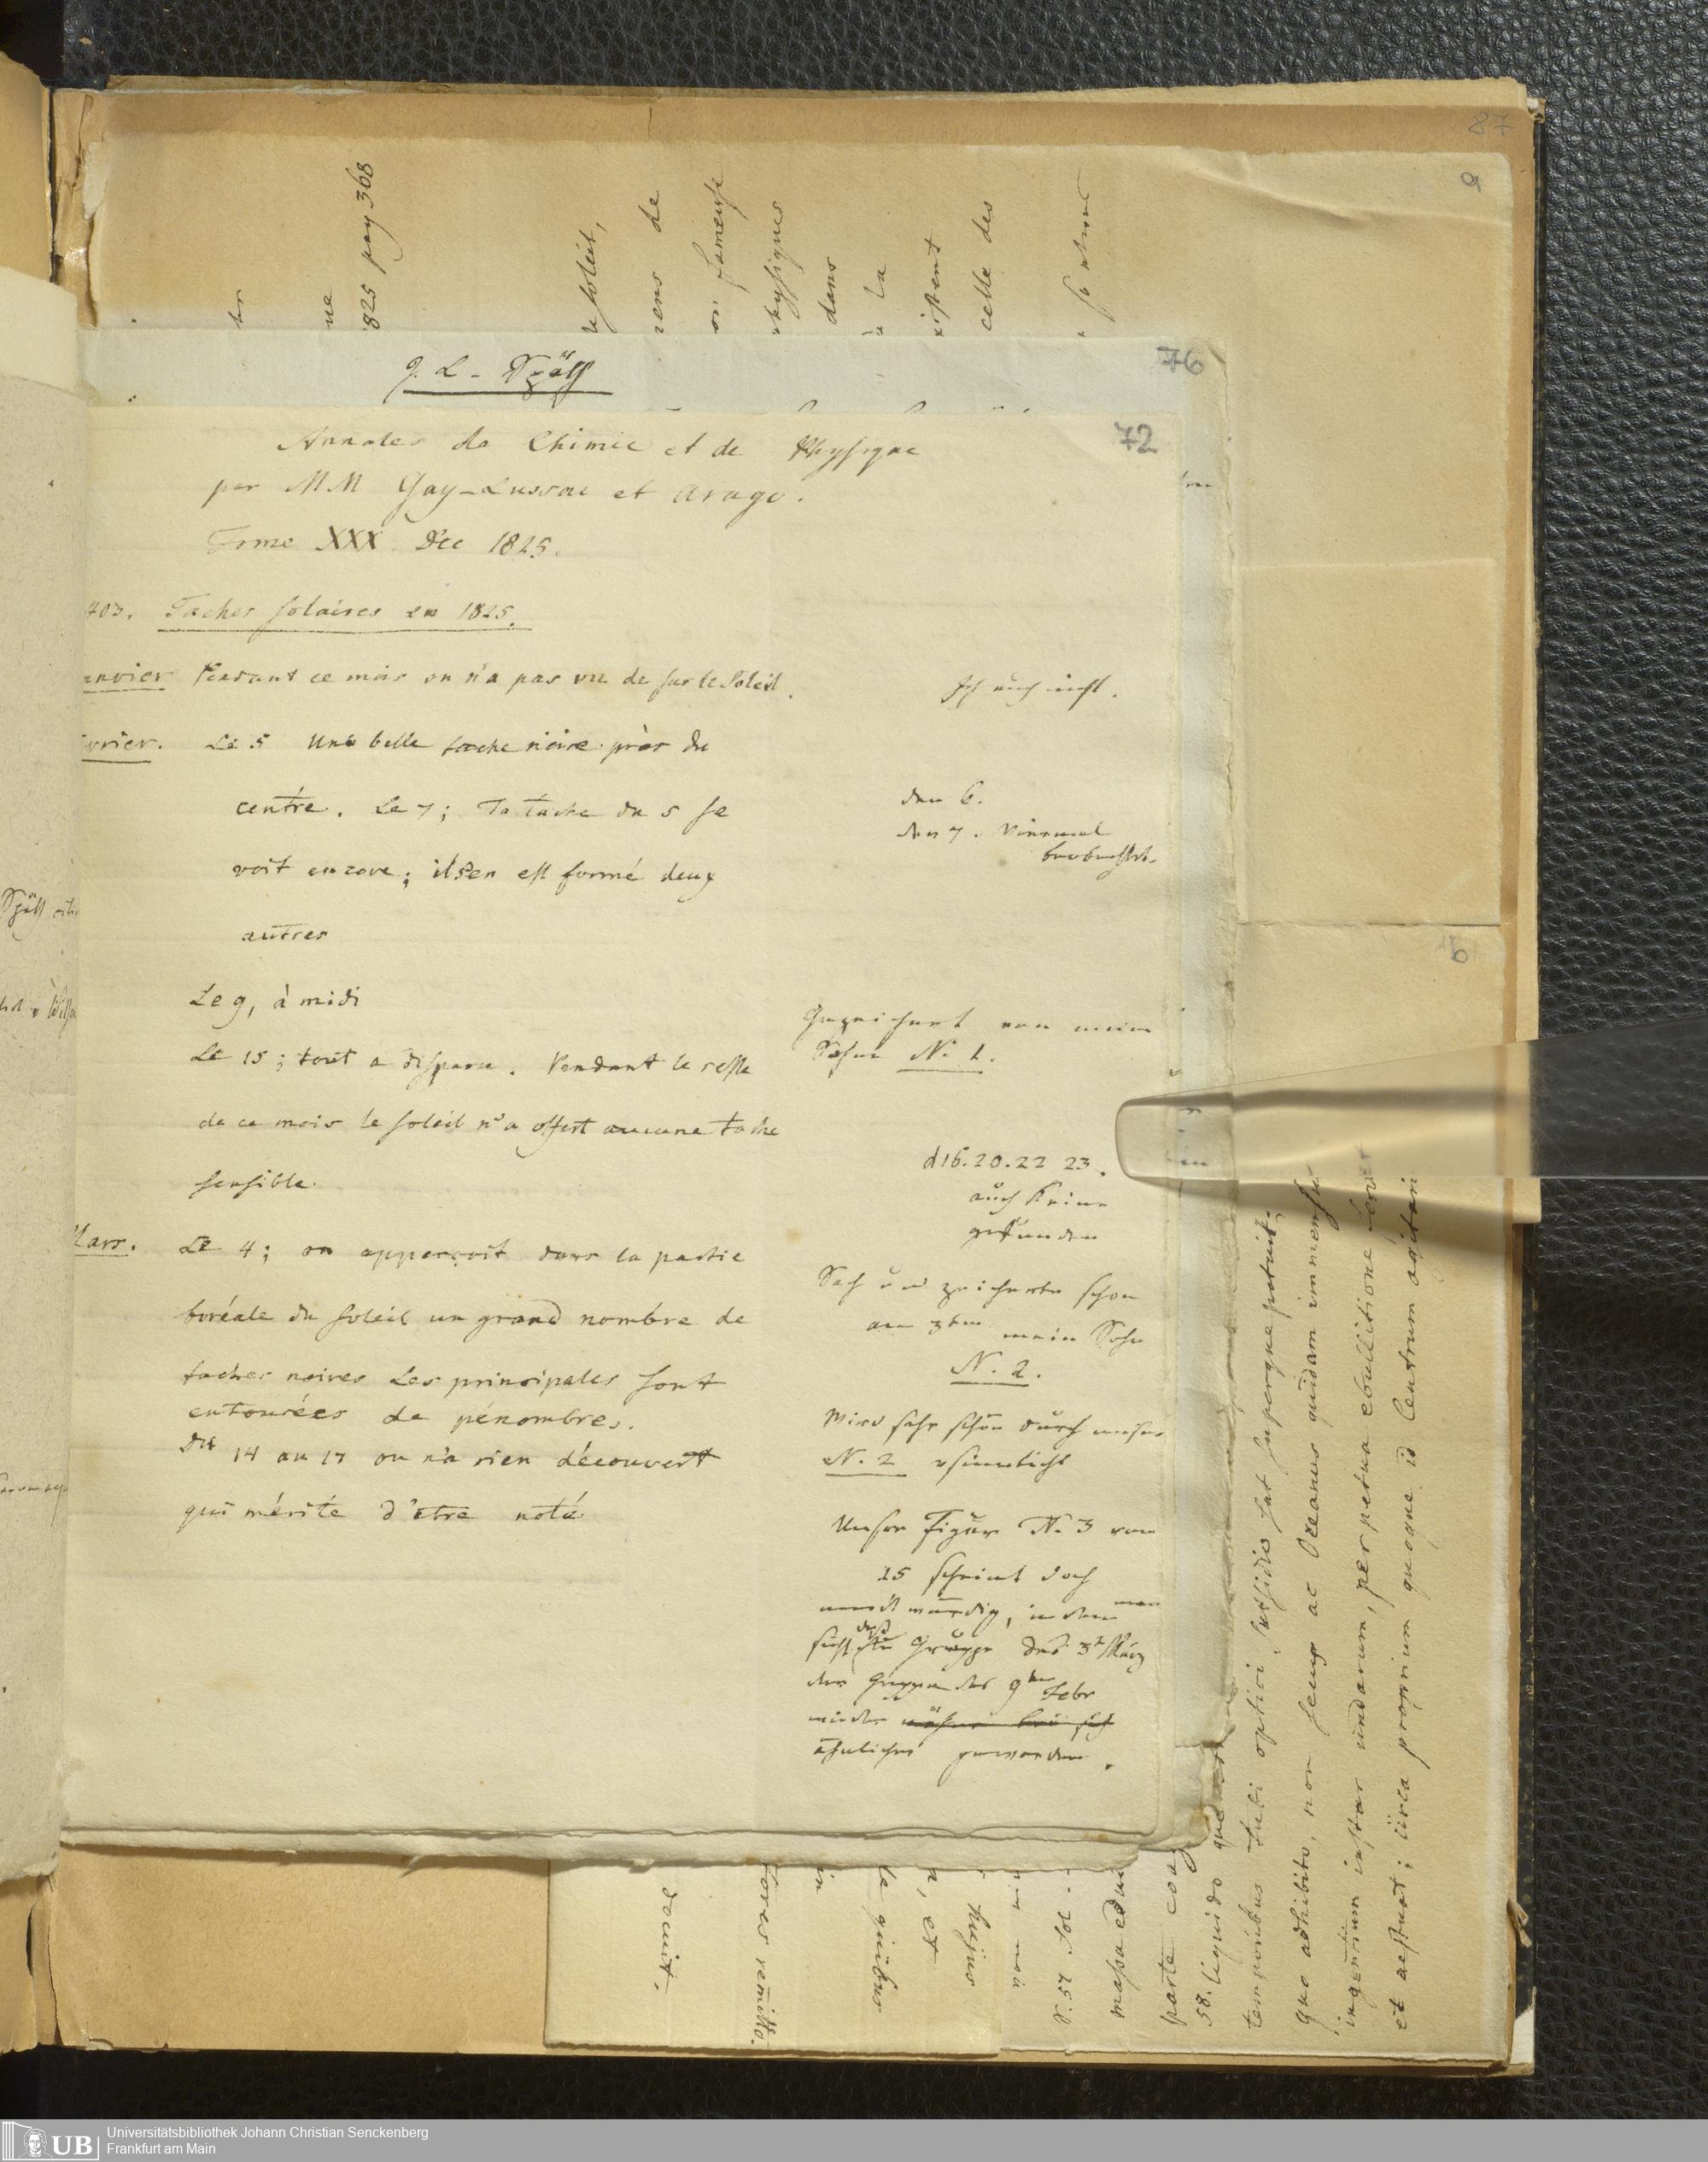 87
9
825 pag 368
de
fameuse
physiques
dans
la
celle des
76
72
Annales de Chimie et de Physique
par MM Gay-Lussac et Arago.
Tome XXX. Dec 1825.
403. Taches solaires en 1825.
anvier Pendant ce mois on n'a pas vu de sur le Soleil.
Ich auch nicht.
vrier. Le 5 Une belle tache noire près du
centre. Le 7; la tache du 5 se
den 6.
den 7. Vinemal
beobachtet.
voit encore; il s'en est formé deux
autres
Le 9, à midi
Gezeichnet von meinem
Sohn N. 1.
Le 15; tout a disparu. Pendant le reste
de ce mois le soleil n'a offert aucune tache
sensible.
d 16. 20. 22 23.
auch keine
gefunden
Mars. Le 4; on apperçoit dans la partie
boréale du soleil un grand nombre de
taches noires Les principales sont
entourées de pénombres.
Sah und zeichnete schon
am 3ten mein Sohn
N. 2.
Wird sehr schön durch unsre
N. 2 versinnlicht
Du 14 au 17 on n'a rien découvert
qui mérite d'être noté
Unsre Figur N. 3 vom
15 scheint doch
merkwürdig, indem man
sieht daß die Gruppe des 3t März
der Gruppe des 9ten Febr
wieder
ähnlicher geworden.
9
S. 57. Sol
massa
parte
58. liquido
temporibus tubi optici subsidio sat superque patuit.
quo adhibito, non secus ac Oceanus quidam immensus
ingentium instar undarum, perpetua ebullitione fervet
et aestuat; circa proprium quoque id Centrum agitari
hujus
, et
le quibus
in
remitto.